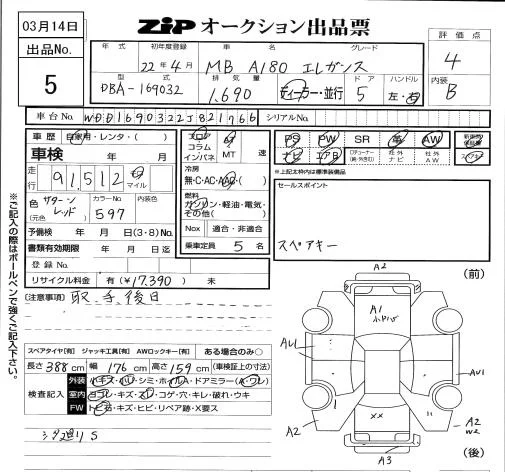 03月14日
ZIP オークション出品票
出品No.
5
年式 初年度登録 車名 グレード
22年4月 MB A180 エレガンス
型式 排気量 ドア ハンドル
DBA-169032 1,690 ディーラー・並行 5 左・右
評価点
4
内装
B
車台No. WDD1690322J821766 シリアルNo.
車歴 自家用・レンタ・( )
車検 年 月
走行 91,512 マイル
色 サターンレッド (元色) カラーNo. 597 内装色
予備検 年 月 日 (3・8) No.
書類有効期限 年 月 日迄
登録No.
リサイクル料金 有(¥17,390) 未
フロア コラム インパネ AT MT 速
冷房
無・C・AC・AAC・( )
燃料
ガソリン・軽油・電気・その他( )
Nox 適合・非適合
乗車定員 5 名
PS PW SR 革 AW
ナビ エアB 社外ナビ 社外AW
*上記太枠内は標準装備品
セールスポイント
スペアキー
[注意事項] 取、手、後日
スペアタイヤ[有] ジャッキ工具[有] AWロックキー[有] ある場合のみ○
長さ 388 cm 幅 176 cm 高さ 159 cm (車検証上の寸法)
検査記入
外装 小キズ・凹・シミ・ホイルA・ドアミラー(A・ワレ)
室内 ヨゴレ・キズ・スレ・コゲ・穴・キレ・破れ・ウキ
FW トビ石・キズ・ヒビ・リペア跡・X要ス
※ご記入の際はボールペンで強くご記入下さい。
(前)
A2
A1
AU1
AU1
XX
A2
A2
W2
A3
(後)